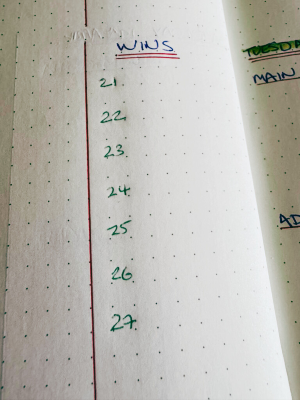 WINS
21.
22
23
24
25
26
27
TUESDA
MAIN
AD